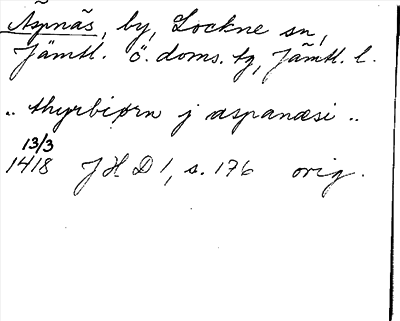 Äspnäs, by, Lockne sn,
Jämtl. ö. doms. tg, Jämtl. l.
.. thyrbiørn j aspanæsi ..
13/3
1418 JHD 1, s. 176 orig.